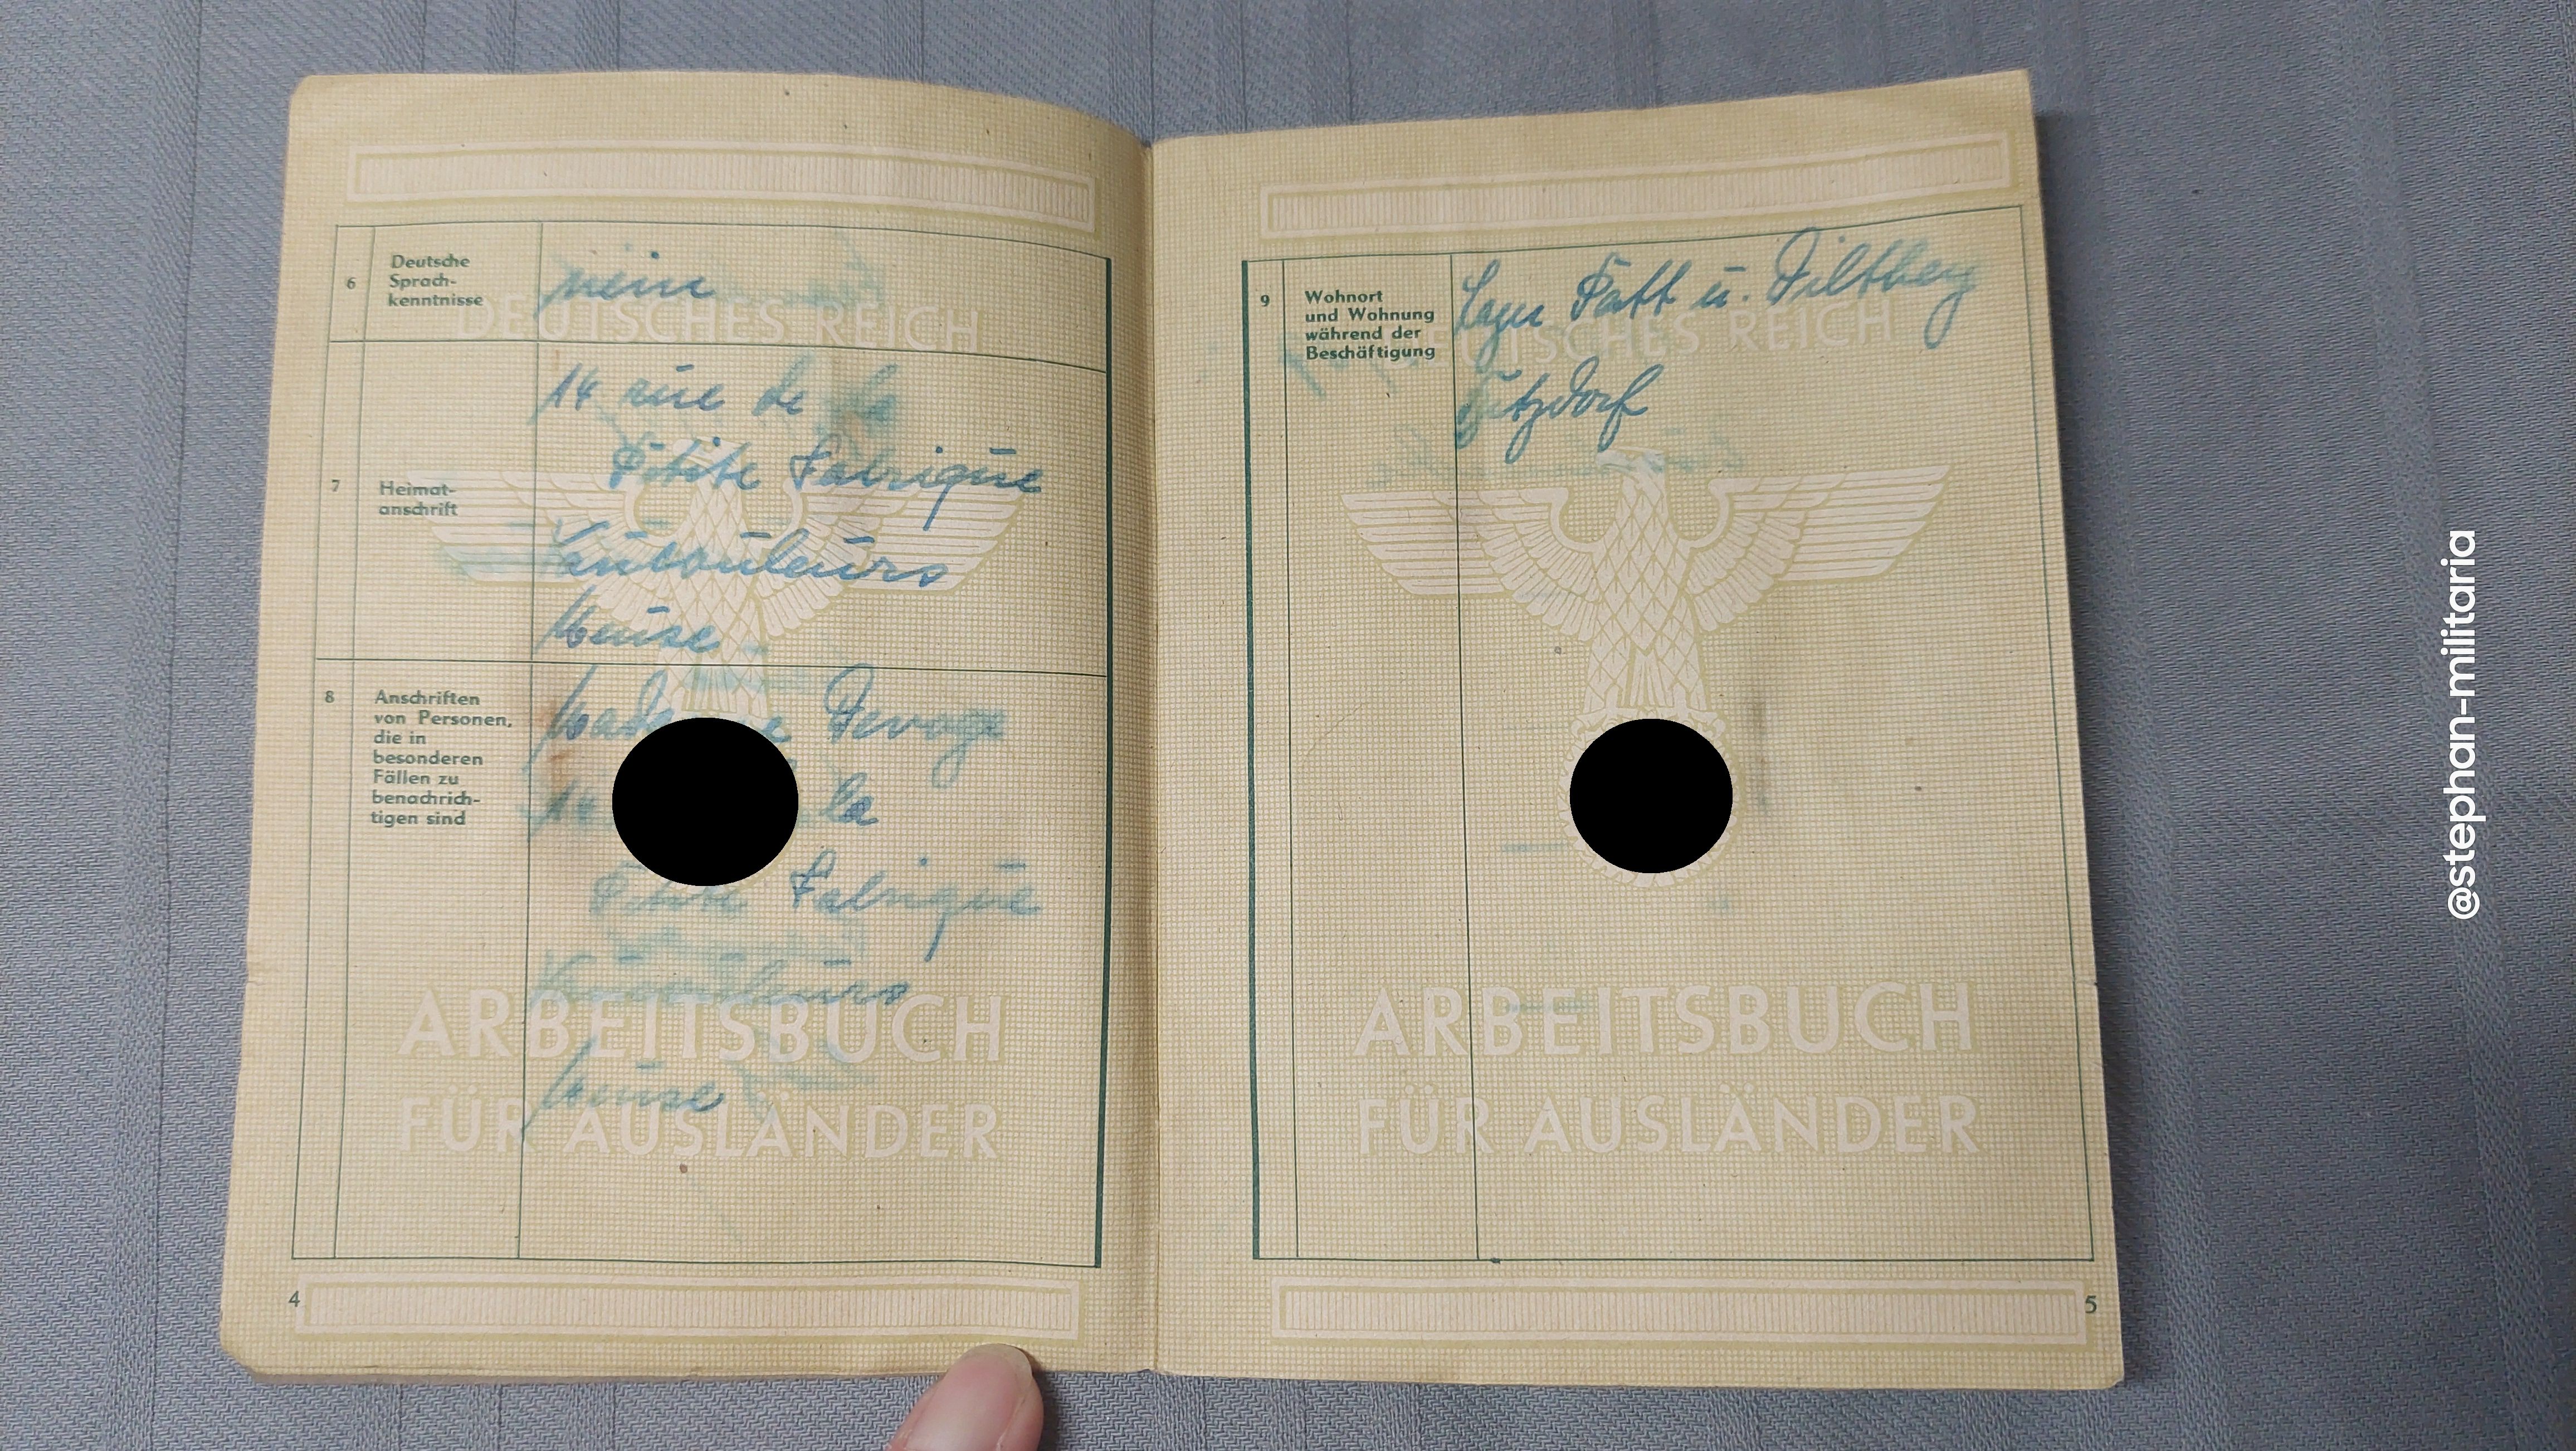 6
Deutsche
Sprach-
kenntnisse
nein
DEUTSCHES REICH
7
Heimat-
anschrift
14 rue de la
Petite Fabrique
Vaucouleurs
Meuse
8
Anschriften
von Personen,
die in
besonderen
Fällen zu
benachrich-
tigen sind
Madame Devoge
14 la
Petite Fabrique
Vaucouleurs
Meuse
ARBEITSBUCH
FÜR AUSLÄNDER
4
9
Wohnort
und Wohnung
während der
Beschäftigung
Lager Patt u.
DEUTSCHES REICH
ARBEITSBUCH
FÜR AUSLÄNDER
5
@stephan-militaria